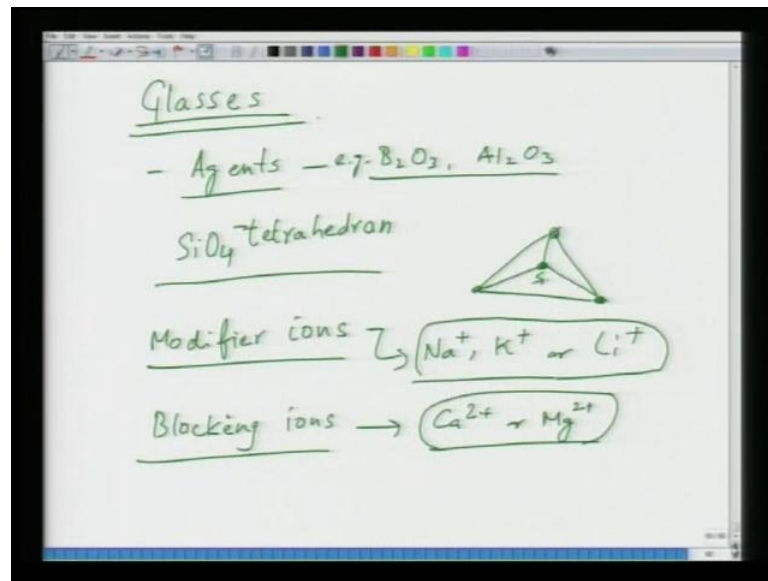 Glasses
- Agents - e.g. B2O3, Al2O3
SiO4 - tetrahedran
Si
Modifier ions → Na+, K+ or Li+
Blocking ions → Ca2+ or Mg2+